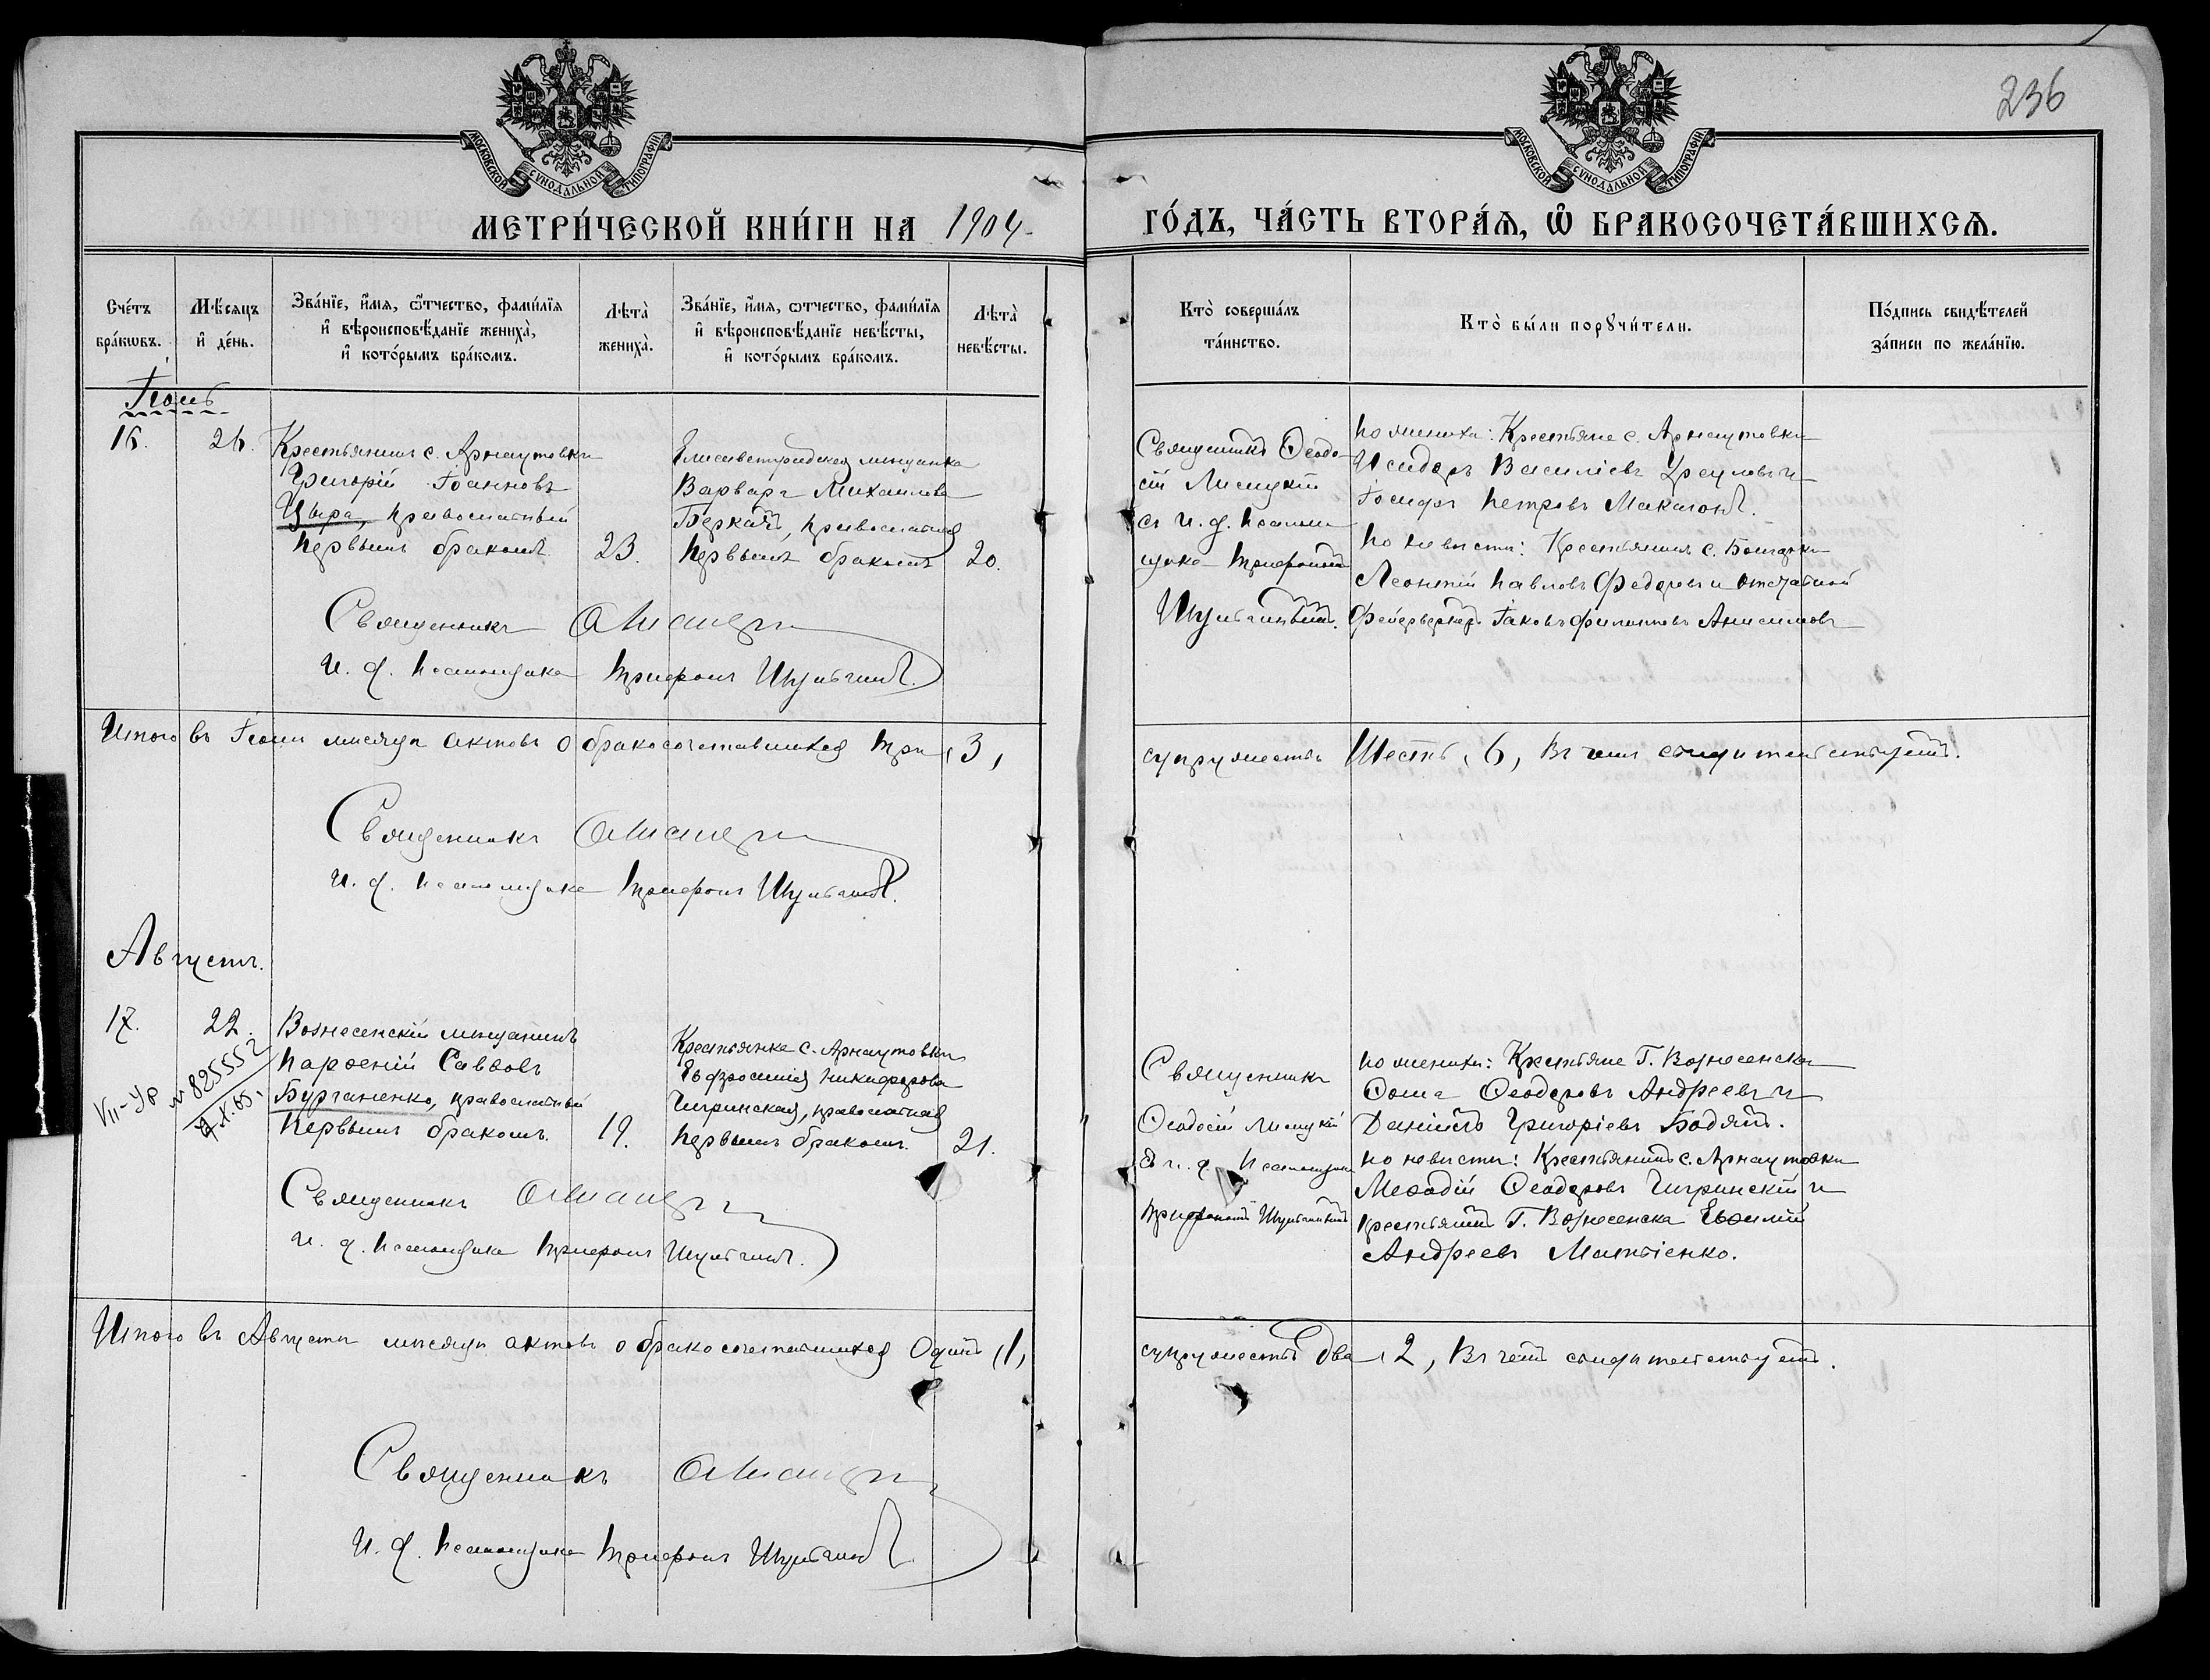 236
МОСКОВСКОЙ СѴНОДАЛЬНОЙ ТИПОГРАФІИ
МОСКОВСКОЙ СѴНОДАЛЬНОЙ ТИПОГРАФІИ
МЕТРИ́ЧЕСКОЙ КНИ́ГИ НА 1904 ГО́ДЪ, ЧА́СТЬ ВТОРА́Ѧ, Ѽ БРАКОСОЧЕТА́ВШИХСѦ.
Сче́тъ бра́кѡвъ.
Мѣ́сяцъ и҆ де́нь.
Зва́нїе, и҆́мѧ, ѻ҆́тчество, фами́лїѧ
и҆ вѣроисповѣ́данїе жениха̀,
и҆ кото́рымъ бра́комъ.
Лѣта̀ жениха̀.
Зва́нїе, и҆́мѧ, ѻтчество, фами́лїѧ
и҆ вѣроисповѣ́данїе невѣ́сты,
и҆ кото́рымъ бра́комъ.
Лѣта̀ невѣ́сты.
Кто̀ соверша́лъ
та́инство.
Кто̀ бы́ли порꙋчи́тели.
По́дпись свидѣ́телей
за́писи по жела́нїю.
Іюль
16.
26.
Крестьянинъ с. Арнаутовки
Григорій Іоанновъ
Цыра, православный
первымъ бракомъ.
23.
Елисаветградская мѣщанка
Варвара Михаилова
православная
первымъ бракомъ
20.
Священникъ Ѳеодо-
сій Лисицкій
съ и. д. псалом-
щика Трифономъ
Шульгинымъ.
По женихѣ: Крестьяне с. Арнаутовки
Исидоръ Василіевъ и
Іосифъ Петровъ Макагонъ.
По невѣстѣ: Крестьянинъ с.
Леонтій Павловъ Федоровъ и отставной
фейерверкеръ Іаковъ Филиповъ Анисимовъ
Священникъ
И. д. псаломщика Трифонъ Шульгинъ.
Итого въ Іюлѣ мѣсяцѣ актовъ о бракосочетавшихся три, 3,
супружествъ Шесть, 6, въ чемъ свидѣтельствуемъ.
Священникъ
И. д. псаломщика Трифонъ Шульгинъ.
Августъ.
17.
22.
VII-УР № 825552
Вознесенскій мѣщанинъ
Парѳеній Саввовъ
Бурганенко, православный
первымъ бракомъ.
19.
Крестьянка с. Арнаутовки
Евфросинія Никифорова
Чигринская, православная
первымъ бракомъ.
21.
Священникъ
Ѳеодосій Лисицкій
съ и. д. псаломщика
Трифономъ Шульгинымъ
По женихѣ: Крестьяне Г. Вознесенска
Ѳома Ѳеодоровъ Андреевъ и
Даніилъ Григоріевъ
По невѣстѣ: Крестьянинъ с. Арнаутовки
Меѳодій Ѳеодоровъ Чигринскій и
крестьянинъ Г. Вознесенска Евѳимій
Андреевъ Матвіенко.
Священникъ
И. д. псаломщика Трифонъ Шульгинъ.
Итого въ Августѣ мѣсяцѣ актовъ о бракосочетавшихся Одинъ, 1,
супружествъ два, 2, въ чемъ свидѣтельствуемъ.
Священникъ
И. д. псаломщика Трифонъ Шульгинъ